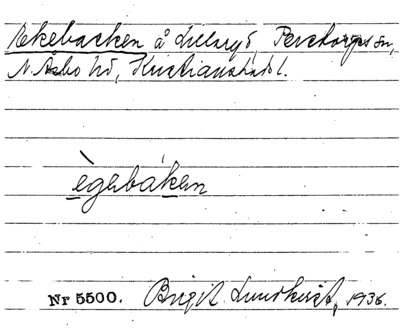 Ekebacken å Lillaryd, Perstorps sn,
N. Åsbo hd, Kristianstads l.
ègɘbákɘn
Nr 5500. Birgit Lundkvist, 1936.